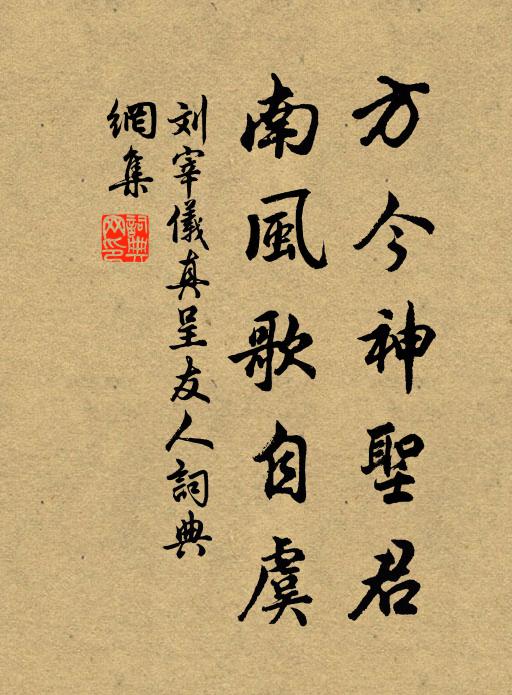 方今神聖君
南風歌自虞
刘宰儀真呈友人詞典
網集
詞典
网印